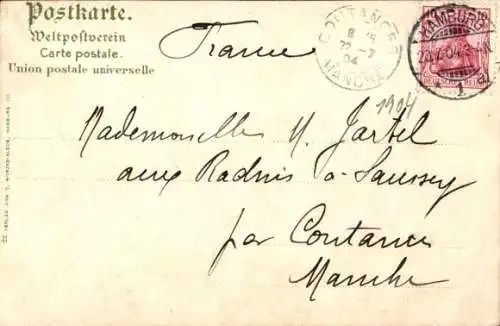 Postkarte.
Weltpostverein
Carte postale.
Union postale universelle
France
COUTANCES
22 -7
04
MANCHE
HAMBURG
* 1
1904
Mademoiselle M. Jartel
aux Radnis à Saussey
par Coutances
Manche